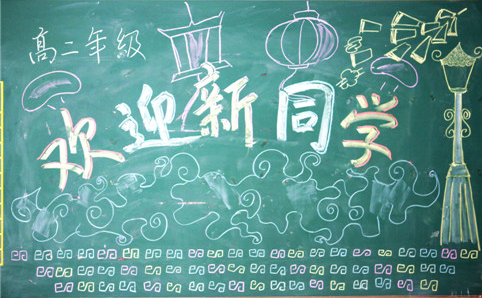 高二年級
欢迎新同学